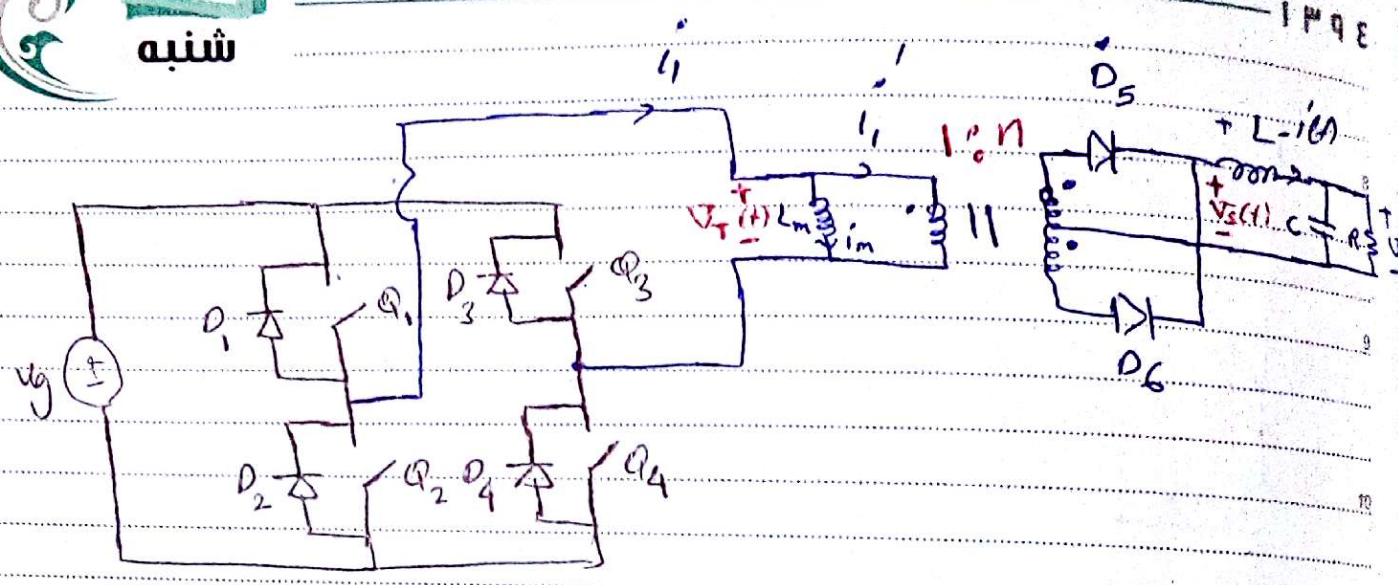 شنبه
۱۳۹٤
i₁
i₁'
D₅
1:n
+ L - i(t)
+ V_T(t) -
L_m
i_m
+ V_s(t) -
C
R
+ V -
D₁
Q₁
D₃
Q₃
Vg
+ -
D₂
Q₂
D₄
Q₄
D₆
8
9
10